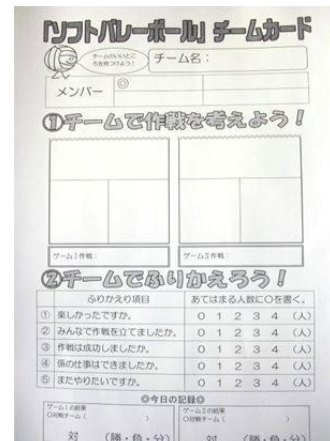 「ソフトバレーボール」チームカード
チームのいいとこ
ろを見つけよう！
チーム名：
メンバー ◎
①チームで作戦を考えよう！
ゲームⅠ作戦： ゲームⅡ作戦：
②チームでふりかえろう！
ふりかえり項目 あてはまる人数に○を書く。
① 楽しかったですか。 0 1 2 3 4 (人)
② みんなで作戦を立てましたか。 0 1 2 3 4 (人)
③ 作戦は成功しましたか。 0 1 2 3 4 (人)
④ 係の仕事はできましたか。 0 1 2 3 4 (人)
⑤ またやりたいですか。 0 1 2 3 4 (人)
◎今日の記録◎
ゲームⅠの結果 ゲームⅡの結果
○対戦チーム（ ） ○対戦チーム（ ）
対 （勝・負・分） 対 （勝・負・分）